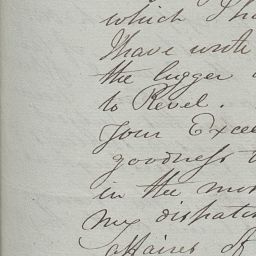 which I ha
I have wrote
the lugger
to Revel.
Your Excel
goodness t
in the mor
my dispatch
affaires of